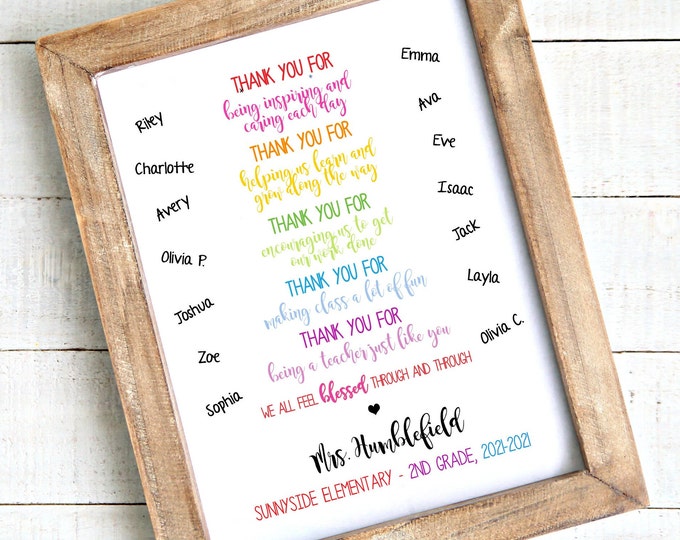 THANK YOU FOR
being inspiring and
caring each day
THANK YOU FOR
helping us learn and
grow along the way
THANK YOU FOR
encouraging us to get
our work done
THANK YOU FOR
making class a lot of fun
THANK YOU FOR
being a teacher just like you
WE ALL FEEL blessed THROUGH AND THROUGH
Mrs. Humblefield
SUNNYSIDE ELEMENTARY - 2ND GRADE, 2021-2021
Riley
Charlotte
Avery
Olivia P.
Joshua
Zoe
Sophia
Emma
Ava
Eve
Isaac
Jack
Layla
Olivia C.